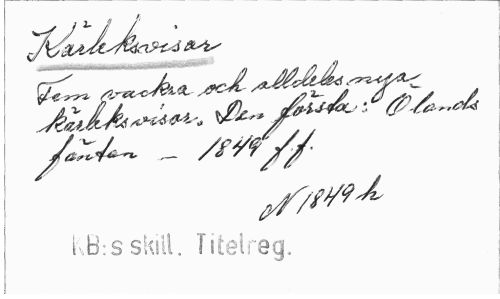 Kärleksvisar
Fem vackra och alldeles nya
kärleksvisor. Den första: Ölands
fänten — 1849 f.f.
N 1849 h
KB:s skill. Titelreg.